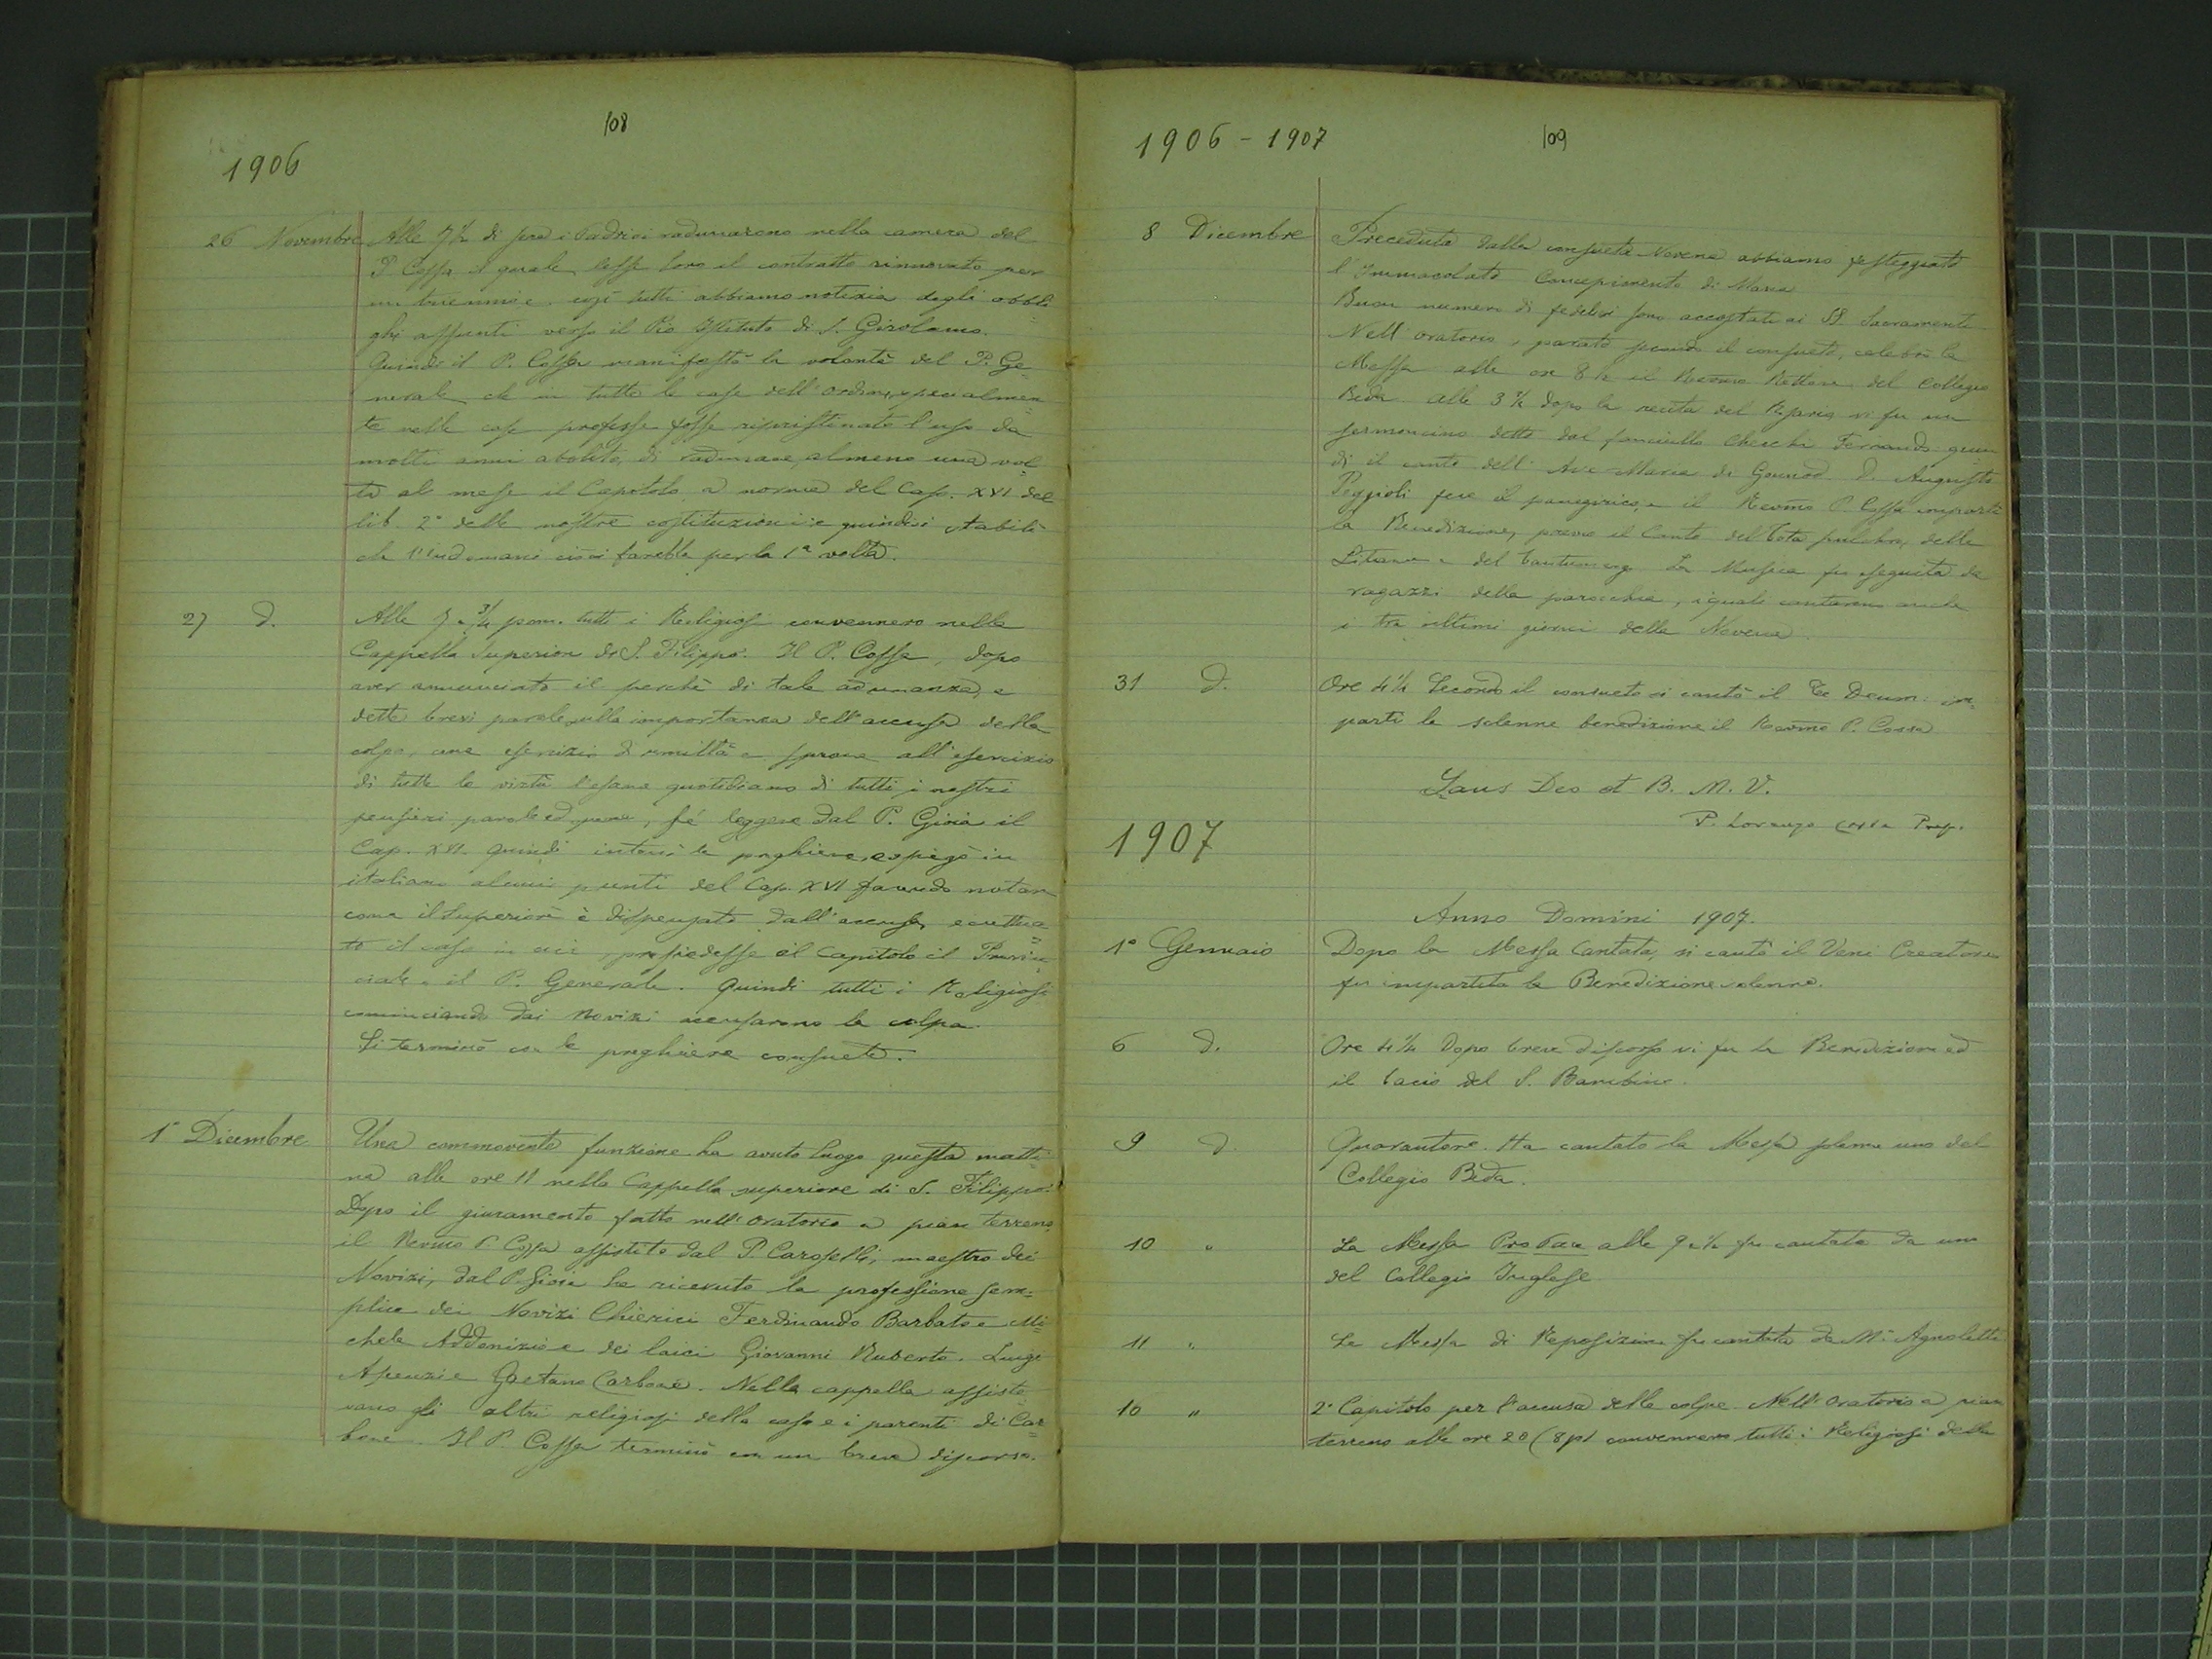 108
1906
26 Novembre Alle 7½ di sera i Padri si radunarono nella camera del
P. Cossa il quale lesse loro il contratto rinnovato per
un triennio e così tutti abbiamo notizia degli obbli
ghi assunti verso il Pio Istituto di S. Girolamo.
Quindi il P. Cossa manifestò la volontà del P. Ge=
nerale che in tutte le case dell'Ordine, specialmen
te nelle case professe fosse ripristinato l'uso da
molti anni abolito, di radunare, almeno una vol
ta al mese il Capitolo a norma del Cap. XVI del
lib. 2° delle nostre costituzioni: e quindi si stabilì
che l'indomani ciò si farebbe per la 1ª volta.
27 d. Alle 7 e ¾ pom. tutti i Religiosi convennero nella
Cappella Superiore di S. Filippo. Il P. Cossa, dopo
aver annunciato il perchè di tale adunanza, e
dette brevi parole sulla importanza dell'accusa della
colpa, come esercizio di umiltà e sprone all'esercizio
di tutte le virtù l'esame quotidiano di tutti i nostri
pensieri parole ed opere, fè leggere dal P. Gioia il
Cap. XVI. Quindi intonò le preghiere, e spiegò in
italiano alcuni punti del Cap. XVI facendo notare
come il Superiore è dispensato dall'accusa, eccettua=
to il caso in cui presiedesse il Capitolo il Provin=
ciale o il P. Generale. Quindi tutti i Religiosi
cominciando dai Novizi accusarono la colpa.
Si terminò con le preghiere consuete.
1° Dicembre Una commovente funzione ha avuto luogo questa matti
na alle ore 11 nella Cappella superiore di S. Filippo.
Dopo il giuramento fatto nell'Oratorio a pian terreno
il Revmo P. Cossa assistito dal P. Caroselli, maestro dei
Novizi, dal P. Gioia ha ricevuto la professione sem=
plice dei Novizi Chierici Ferdinando Barbato e Mi=
chele Addonizio e dei laici Giovanni Ruberto, Luigi
Ascuzi e Gaetano Carbone. Nella cappella assiste
vano gli altri religiosi della casa e i parenti di Car=
bone. Il P. Cossa terminò con un breve discorso.
1906 - 1907 109
8 Dicembre Preceduta dalla consueta Novena abbiamo festeggiato
l'Immacolato Concepimento di Maria
Buon numero di fedeli si sono accostati ai SS. Sacramenti
Nell'oratorio, parato secondo il consueto, celebrò la
Messa alle ore 8½ il Revmo Rettore del Collegio
Beda. Alle 3¾ dopo la recita del Rosario vi fu un
sermoncino detto dal fanciullo Checchi Fernando: quin
di il canto dell'Ave Maria di Gounod. D. Augusto
Poggioli fece il panegirico, e il Revmo P. Cossa impartì
la Benedizione, previo il Canto del Tota pulchra, delle
Litanie e del Tantum ergo. La Musica fu eseguita da
ragazzi della parocchia, i quali cantarono anche
i tre ultimi giorni della Novena.
31 d. Ore 4¼ Secondo il consueto si cantò il Te Deum: im=
partì la solenne benedizione il Revmo P. Cossa
Laus Deo et B. M. V.
P. Lorenzo Cossa Prep.
1907
Anno Domini 1907.
1° Gennaio Dopo la Messa Cantata, si cantò il Veni Creator e
fu impartita la Benedizione solenne.
6 d. Ore 4¼ Dopo breve discorso vi fu la Benedizione ed
il bacio del S. Bambino.
9 d. Quarantore. Ha cantato la Messa solenne uno del
Collegio Beda.
10 " La Messa Pro Pace alle 9 e ½ fu cantata da uno
del Collegio Inglese
11 " La Messa di Reposizione fu cantata da M.r Agnoletti
10 " 2° Capitolo per l'accusa delle colpe. Nell'Oratorio a pian
terreno alle ore 20 (8 p) convennero tutti i Religiosi della